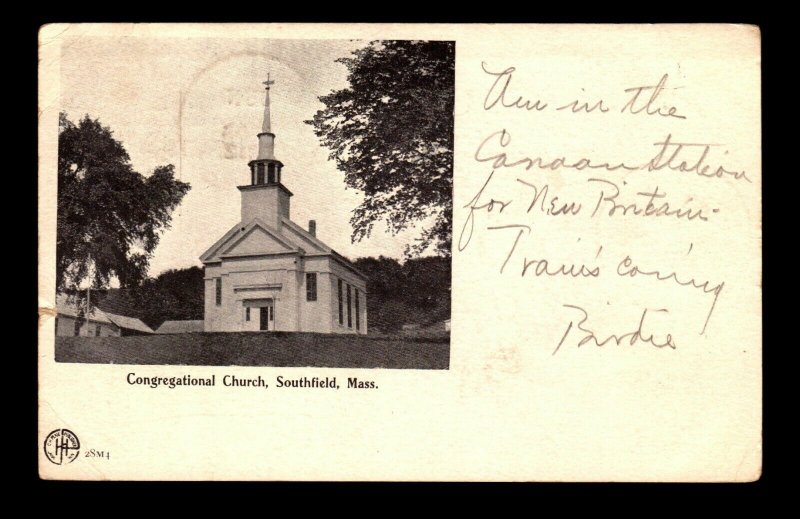 Am in the
Canaan Station
for New Britain-
Train's coming
Birdie
Congregational Church, Southfield, Mass.
28M4